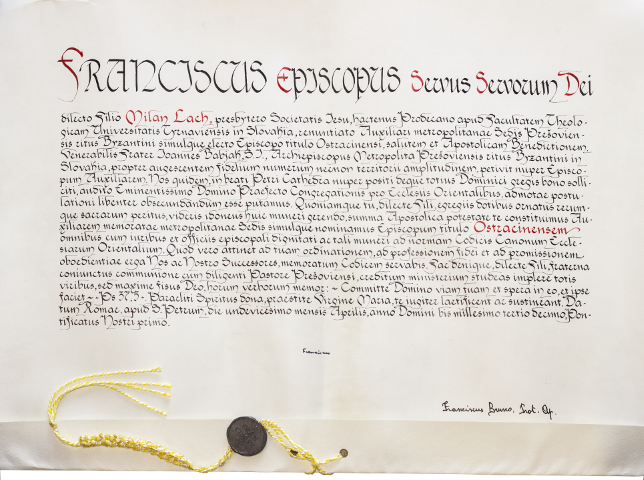 Franciscus Episcopus Servus Servorum Dei
dilecto Filio Milan Lach, presbytero Societatis Iesu, hactenus Prodecano apud Facultatem Theolo-
gicam Universitatis Tyrnaviensis in Slovakia, renuntiato Auxiliari metropolitanae Sedis Prešovien-
sis ritus Byzantini simulque electo Episcopo titulo Ostracinensi, salutem et Apostolicam Benedictionem.
Venerabilis Frater Ioannes Babjak, S.I., Archiepiscopus Metropolita Prešoviensis ritus Byzantini in
Slovakia, propter augescentem fidelium numerum necnon territorii amplitudinem, petivit nuper Episco-
pum Auxiliarem. Nos quidem, in beati Petri Cathedra nuper positi deque totius Dominici gregis bono solli-
citi, audito Eminentissimo Domino Praefecto Congregationis pro Ecclesiis Orientalibus, admotae postu-
lationi libenter obsecundandum esse putamus. Quoniamque tu, dilecte Fili, egregiis dotibus ornatus rerum-
que sacrarum peritus, videris idoneus huic muneri gerendo, summa Apostolica potestate te constituimus Au-
xiliarem memoratae metropolitanae Sedis simulque nominamus Episcopum titulo Ostracinensem
omnibus cum iuribus et officiis episcopali dignitati ac tali muneri ad normam Codicis Canonum Eccle-
siarum Orientalium. Quod vero attinet ad tuam ordinationem, ad professionem fidei et ad promissionem
obœdientiae erga Nos ac Nostros Successores, memoratum Codicem servabis. Fac denique, dilecte Fili, fraterna
coniunctus communione cum diligenti Pastore Prešoviensi, creditum ministerium studeas implere totis
viribus, sed maxime fisus Deo, horum verborum memor: ~ Committe Domino viam tuam et spera in eo, et ipse
faciet ~ Ps 37,5. Paracliti Spiritus dona, praestite Virgine Maria, te iugiter laetificent ac sustineant. Da-
tum Romae, apud S. Petrum, die undevicesimo mensis Aprilis, anno Domini bis millesimo tertio decimo, Pon-
tificatus Nostri primo.
Franciscus
Franciscus Bruno, Prot. Ap.